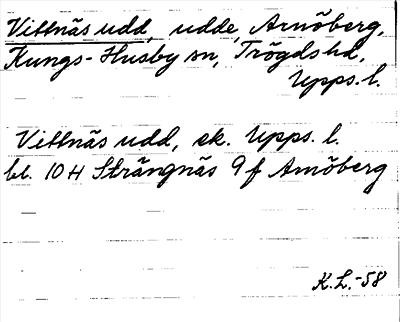 Vittnäs udd, udde, Arnöberg,
Kungs-Husby sn, Trögds hd,
Upps. l.
Vittnäs udd, ek. Upps. l.
bl. 10 H Strängnäs 9 f Arnöberg
K.L.-58